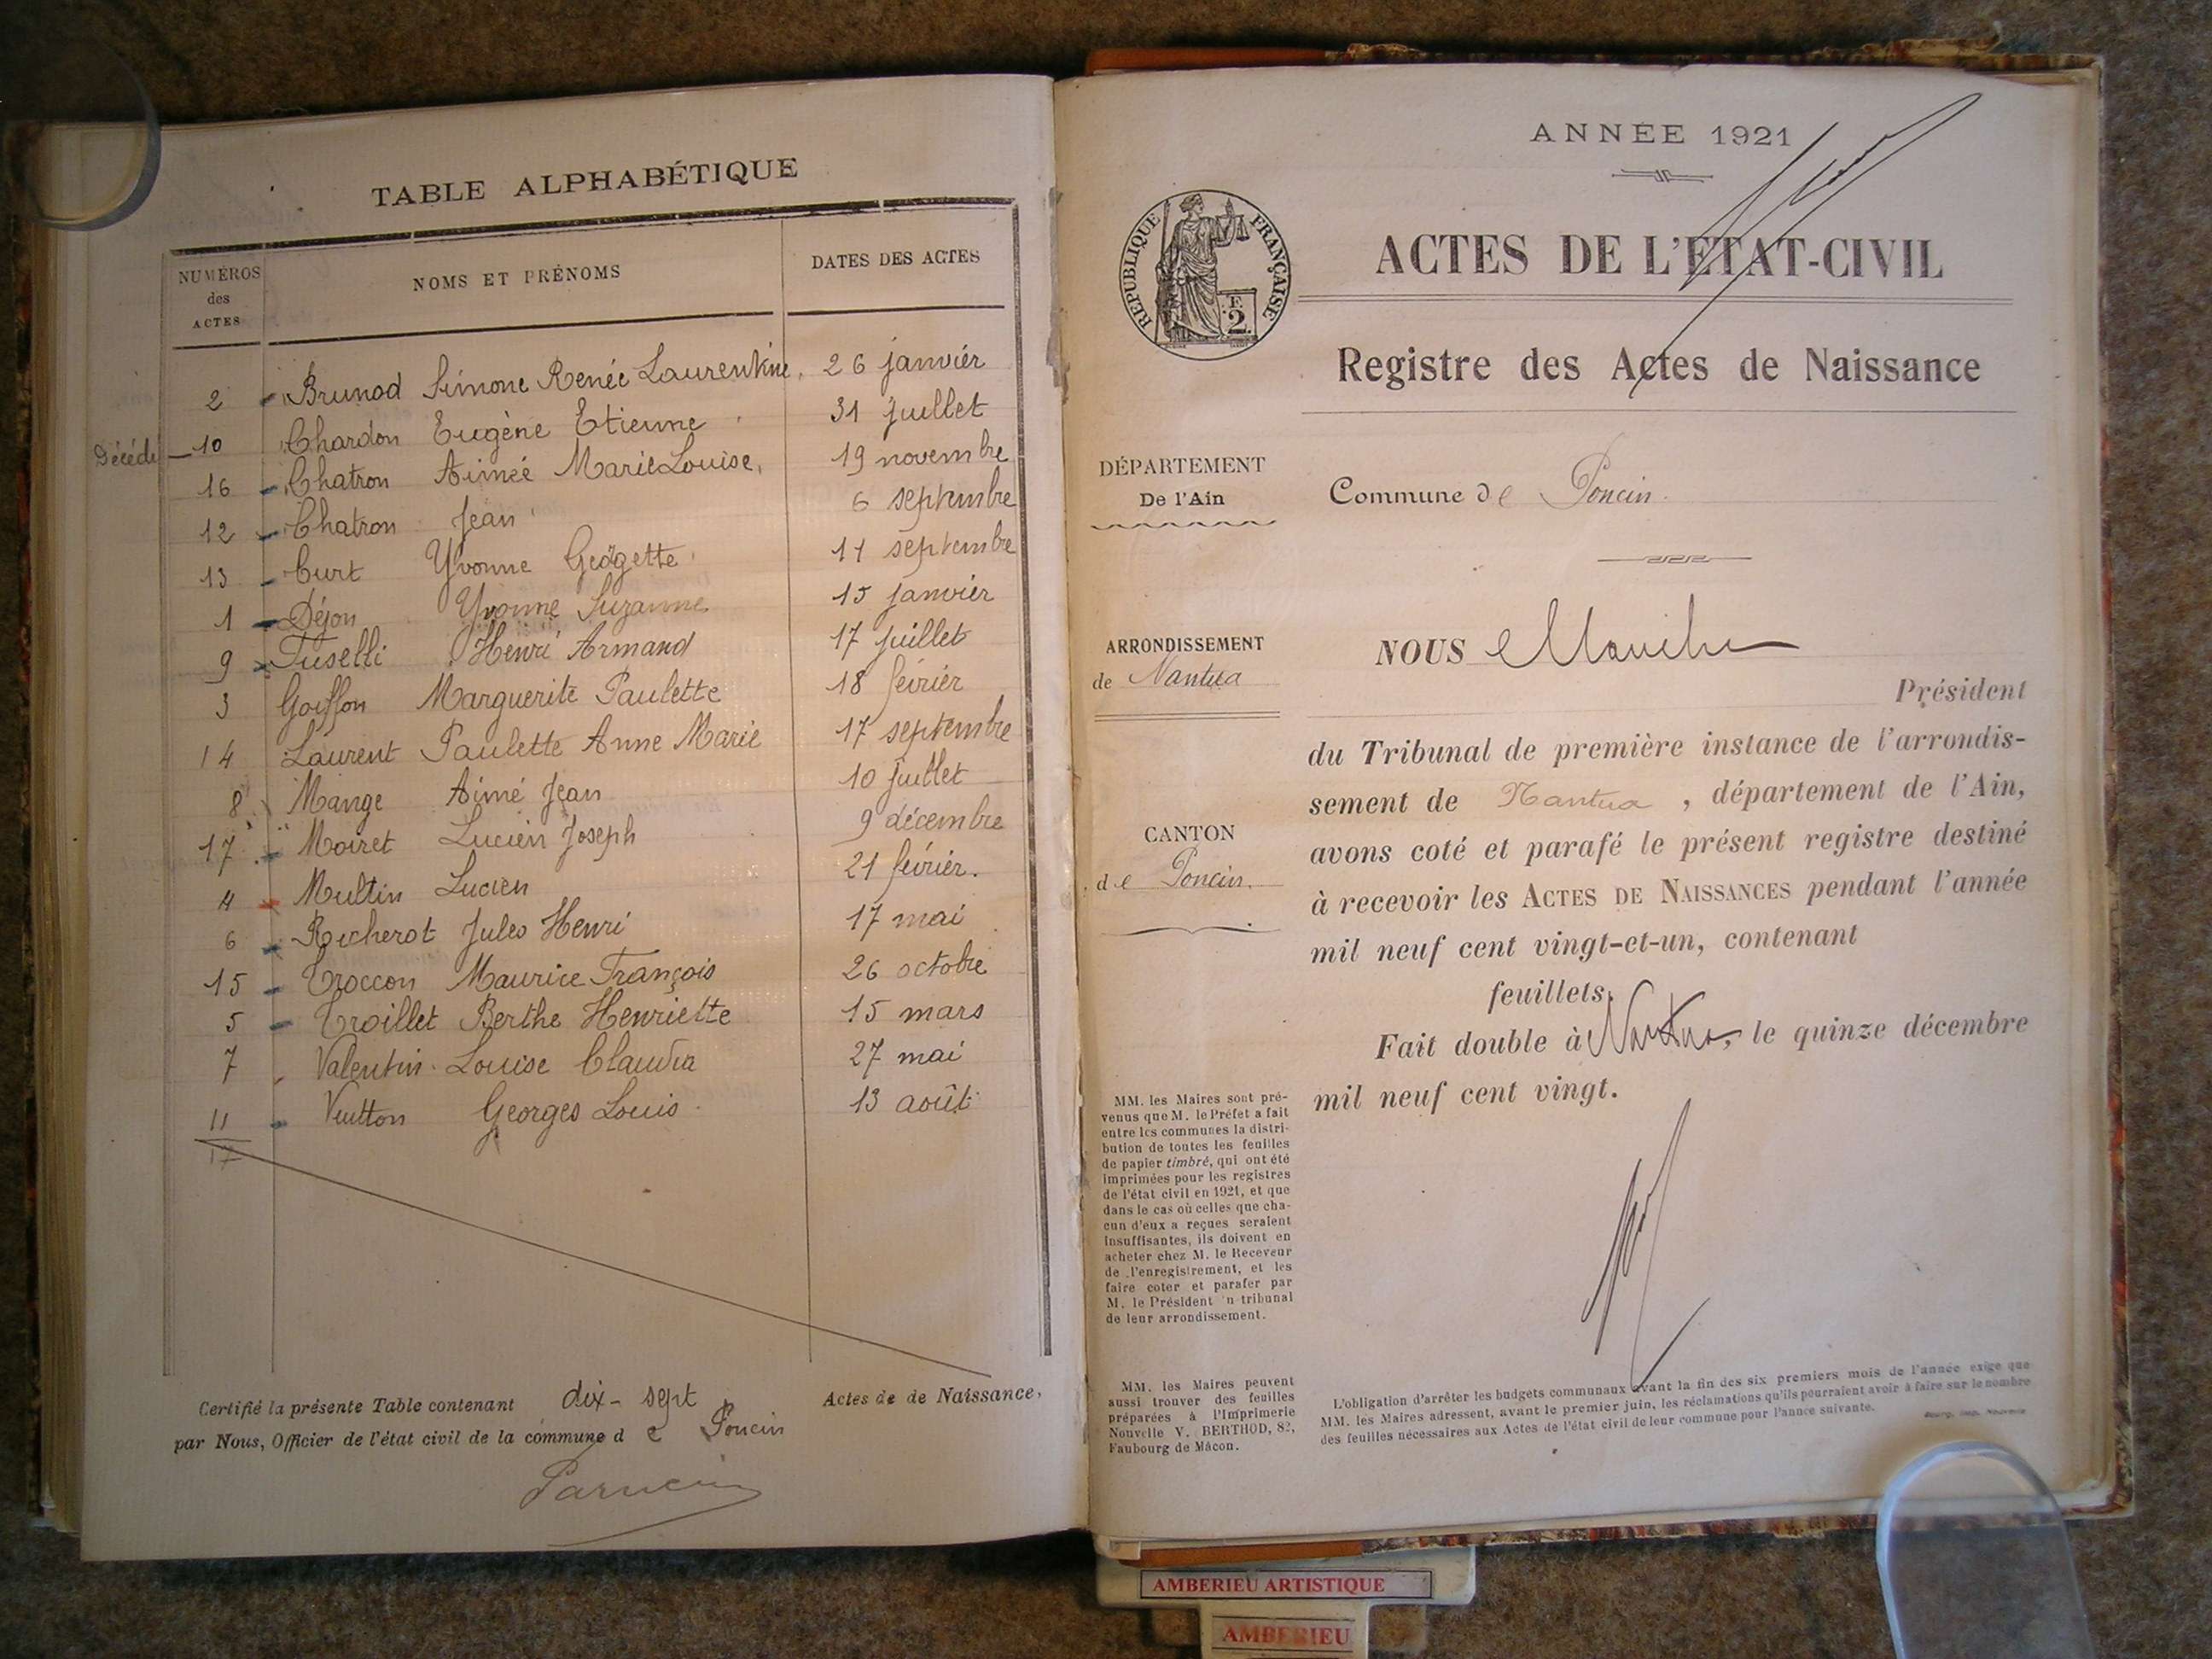 TABLE ALPHABÉTIQUE
NUMÉROS des ACTES
NOMS ET PRÉNOMS
DATES DES ACTES
2 Brunod Simone Renée Laurentine. 26 janvier
Décédé 10 Chardon Eugène Etienne 31 juillet
16 Chatron Aimée Marie Louise, 19 novembre
12 Chatron Jean 6 septembre
13 Curt Yvonne Georgette 11 septembre
1 Déjon Yvonne Suzanne 15 janvier
9 Fuselli Henri Armand 17 juillet
3 Goiffon Marguerite Paulette 18 février
14 Laurent Paulette Anne Marie 17 septembre
8 Mange Aimé Jean 10 juillet
17 Moiret Lucien Joseph 9 décembre
4 Multin Lucien 21 février.
6 Richerot Jules Henri 17 mai
15 Troccon Maurice François 26 octobre
5 Troillet Berthe Henriette 15 mars
7 Valentin Louise Claudia 27 mai
11 Vuitton Georges Louis 13 août
17
Certifié la présente Table contenant dix-sept Actes de de Naissance,
par Nous, Officier de l'état civil de la commune de Poncin
ANNÉE 1921
RÉPUBLIQUE FRANÇAISE
F. 2.
ACTES DE L'ÉTAT-CIVIL
Registre des Actes de Naissance
DÉPARTEMENT
De l'Ain
Commune de Poncin.
ARRONDISSEMENT
de Nantua
NOUS
Président
du Tribunal de première instance de l'arrondis-
sement de Nantua, département de l'Ain,
avons coté et parafé le présent registre destiné
à recevoir les ACTES DE NAISSANCES pendant l'année
mil neuf cent vingt-et-un, contenant
feuillets.
Fait double à Nantua, le quinze décembre
mil neuf cent vingt.
CANTON
de Poncin.
MM. les Maires sont pré-
venus que M. le Préfet a fait
entre les communes la distri-
bution de toutes les feuilles
de papier timbré, qui ont été
imprimées pour les registres
de l'état civil en 1921, et que
dans le cas où celles que cha-
cun d'eux a reçues seraient
insuffisantes, ils doivent en
acheter chez M. le Receveur
de l'enregistrement, et les
faire coter et parafer par
M. le Président u tribunal
de leur arrondissement.
MM. les Maires peuvent
aussi trouver des feuilles
préparées à l'Imprimerie
Nouvelle V. BERTHOD, 82,
Faubourg de Mâcon.
L'obligation d'arrêter les budgets communaux avant la fin des six premiers mois de l'année exige que
MM. les Maires adressent, avant le premier juin, les réclamations qu'ils pourraient avoir à faire sur le nombre
des feuilles nécessaires aux Actes de l'état civil de leur commune pour l'année suivante.
Bourg, Imp. Nouvelle
AMBERIEU ARTISTIQUE
AMBERIEU